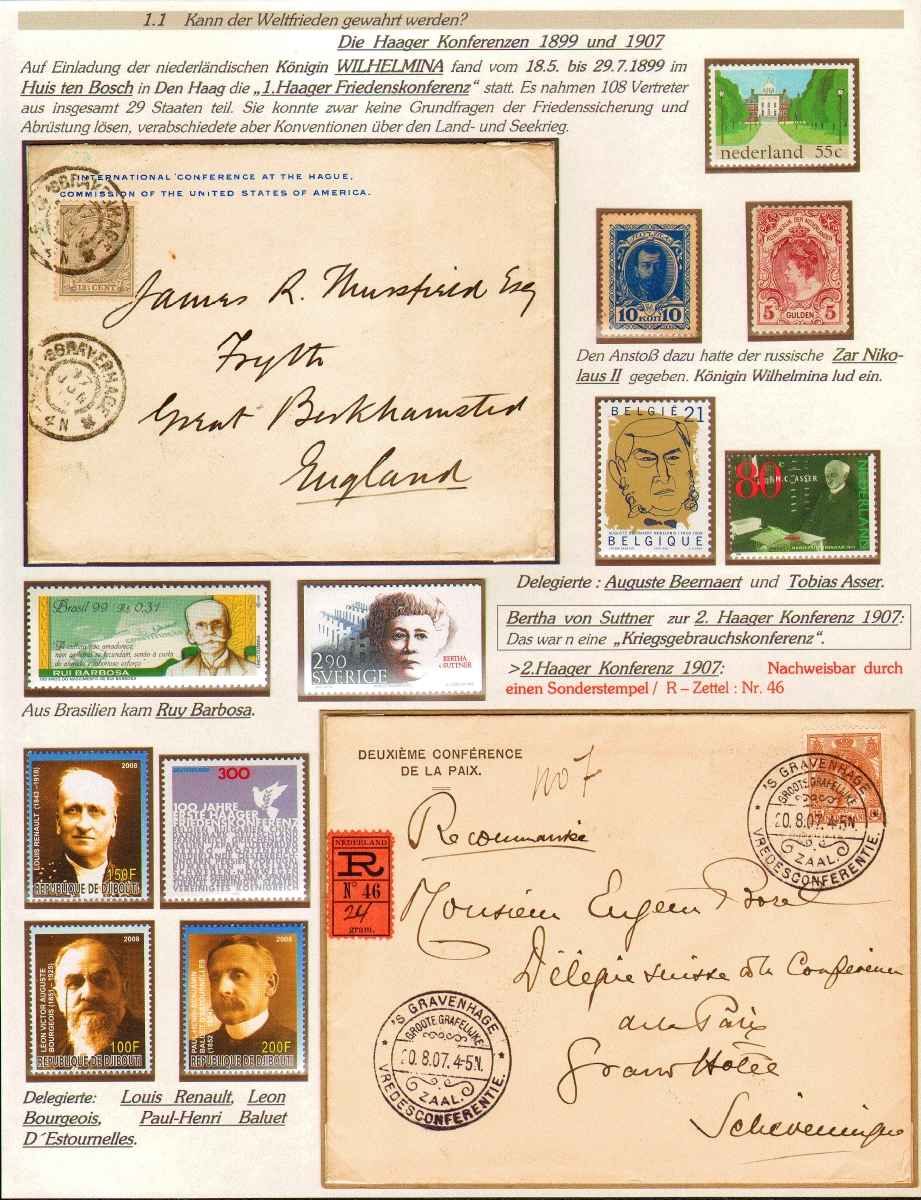 1.1 Kann der Weltfrieden gewahrt werden?
Die Haager Konferenzen 1899 und 1907
Auf Einladung der niederländischen Königin WILHELMINA fand vom 18.5. bis 29.7.1899 im
Huis ten Bosch in Den Haag die „1.Haager Friedenskonferenz“ statt. Es nahmen 108 Vertreter
aus insgesamt 29 Staaten teil. Sie konnte zwar keine Grundfragen der Friedenssicherung und
Abrüstung lösen, verabschiedete aber Konventionen über den Land- und Seekrieg.
nederland 55c
INTERNATIONAL CONFERENCE AT THE HAGUE,
COMMISSION OF THE UNITED STATES OF AMERICA.
'SGRAVENHAGE
12½ CENT
James R. Esq
Great Berkhamsted
England
'SGRAVENHAGE
17
JUN
4N
10 КОП 10
KONINKRIJK DER NEDERLANDEN
5 GULDEN 5
Den Anstoß dazu hatte der russische Zar Niko-
laus II gegeben. Königin Wilhelmina lud ein.
BELGIË 21
BELGIQUE
80
T.M.C. ASSER
NEDERLAND
Delegierte : Auguste Beernaert und Tobias Asser.
Brasil 99 R$ 0,31
RUI BARBOSA
150 ANOS DO NASCIMENTO DE RUI BARBOSA
2.90
SVERIGE
BERTHA
V SUTTNER
Bertha von Suttner zur 2. Haager Konferenz 1907:
Das war n eine „Kriegsgebrauchskonferenz“.
>2.Haager Konferenz 1907: Nachweisbar durch
einen Sonderstempel / R – Zettel : Nr. 46
Aus Brasilien kam Ruy Barbosa.
LOUIS RENAULT (1843 -1918)
2008
150F
REPUBLIQUE DE DJIBOUTI
DEUTSCHLAND 300
100 JAHRE
ERSTE HAAGER
FRIEDENSKONFERENZ
BELGIEN BULGARIEN CHINA
VEREINIGTES KÖNIGREICH
LÉON VICTOR AUGUSTE
BOURGEOIS (1851 – 1925)
2008
100F
REPUBLIQUE DE DJIBOUTI
2008
200F
REPUBLIQUE DE DJIBOUTI
Delegierte: Louis Renault, Leon
Bourgeois, Paul-Henri Baluet
D´Estournelles.
DEUXIÈME CONFÉRENCE
DE LA PAIX.
No 7
Recommandée
NEDERLAND
R
No 46
24
gram.
'S GRAVENHAGE
GROOTE GRAFELIJKE
20.8.07. 4-5N.
ZAAL.
VREDESCONFERENTIE.
Monsieur Eugène Borel
Délégué suisse à la Conférence
de la Paix
Grand Hôtel
Scheveningue
'S GRAVENHAGE
GROOTE GRAFELIJKE
20.8.07. 4-5N.
ZAAL.
VREDESCONFERENTIE.